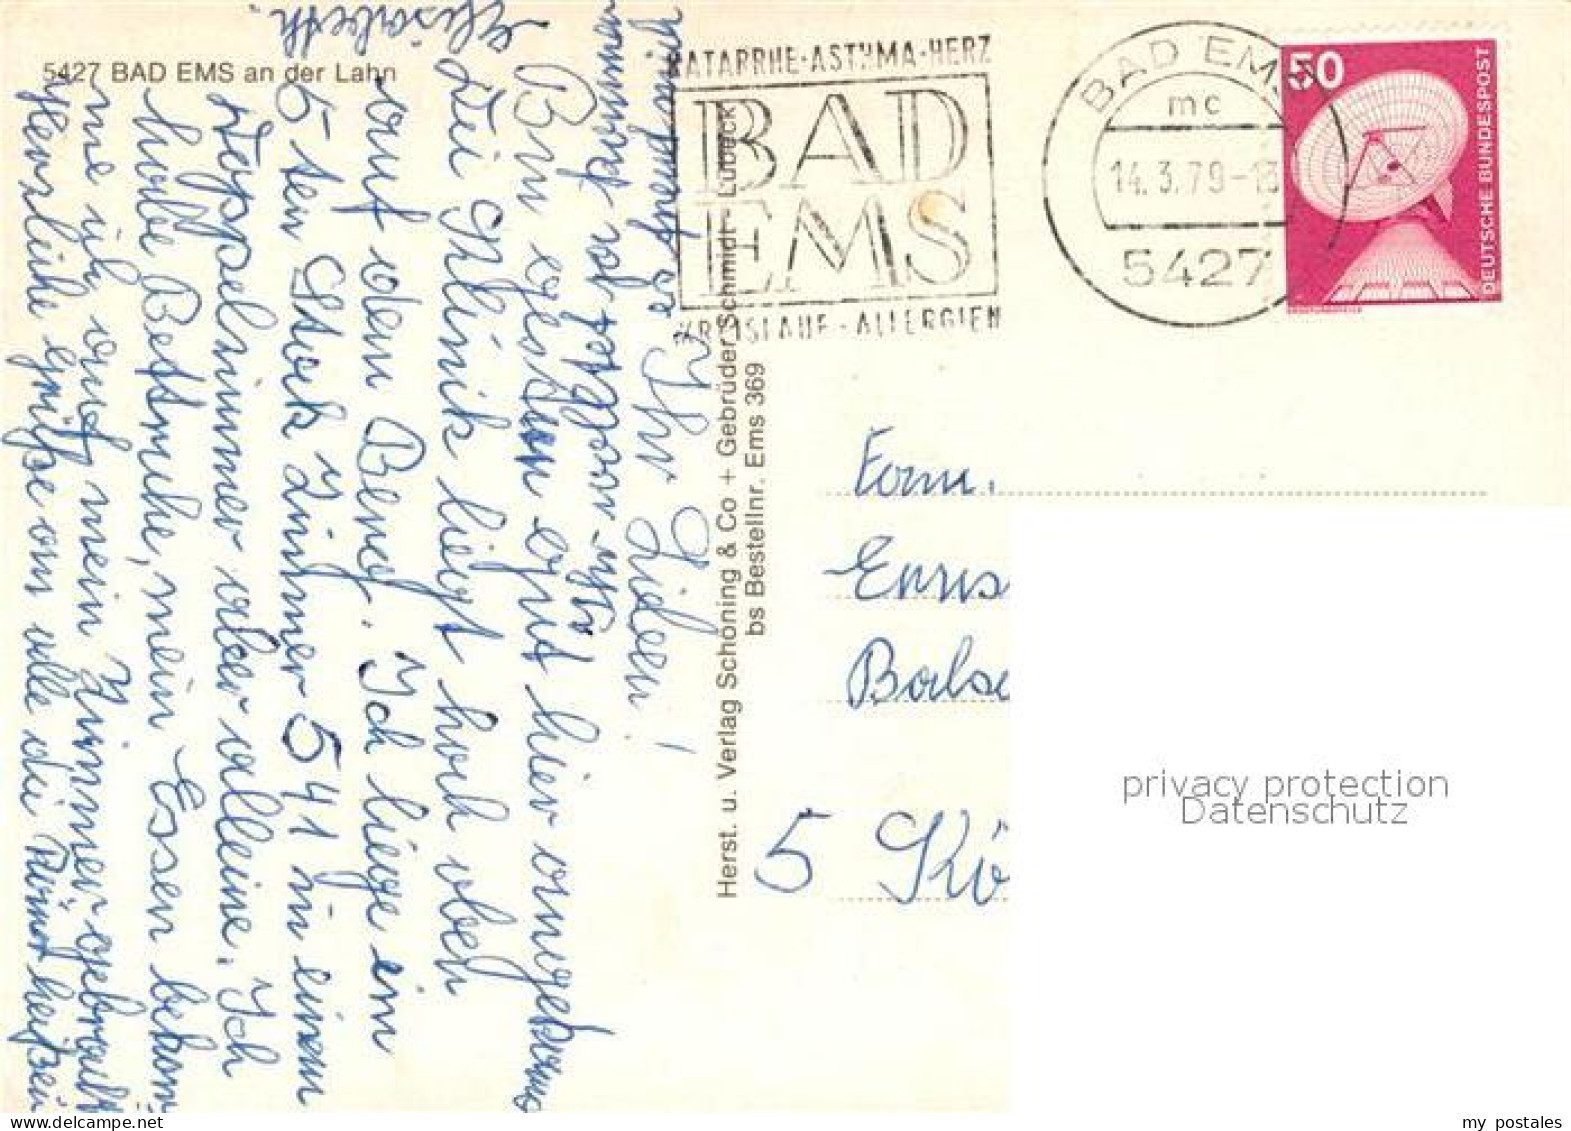 5427 BAD EMS an der Lahn
KATARRHE-ASTHMA-HERZ
BAD
EMS
KREISLAUF-ALLERGIEN
BAD EMS
mc
14.3.79-18
5427
50
DEUTSCHE BUNDESPOST
Herst. u. Verlag Schöning & Co + Gebrüder Schmidt - Lübeck
bs Bestellnr. Ems 369
Ihr Lieben!
Bin gestern gut hier angekommen
Die Klinik liegt hoch oben
auf dem Berg. Ich liege im
5-ten Stock Zimmer 541 in einem
Doppelzimmer aber alleine. Ich
habe Bettruhe, mein Essen bekom-
me ich auf mein Zimmer gebracht
Herzliche Grüße an alle
Elisabeth.
Fam.
5 Kö
privacy protection
Datenschutz
my postales